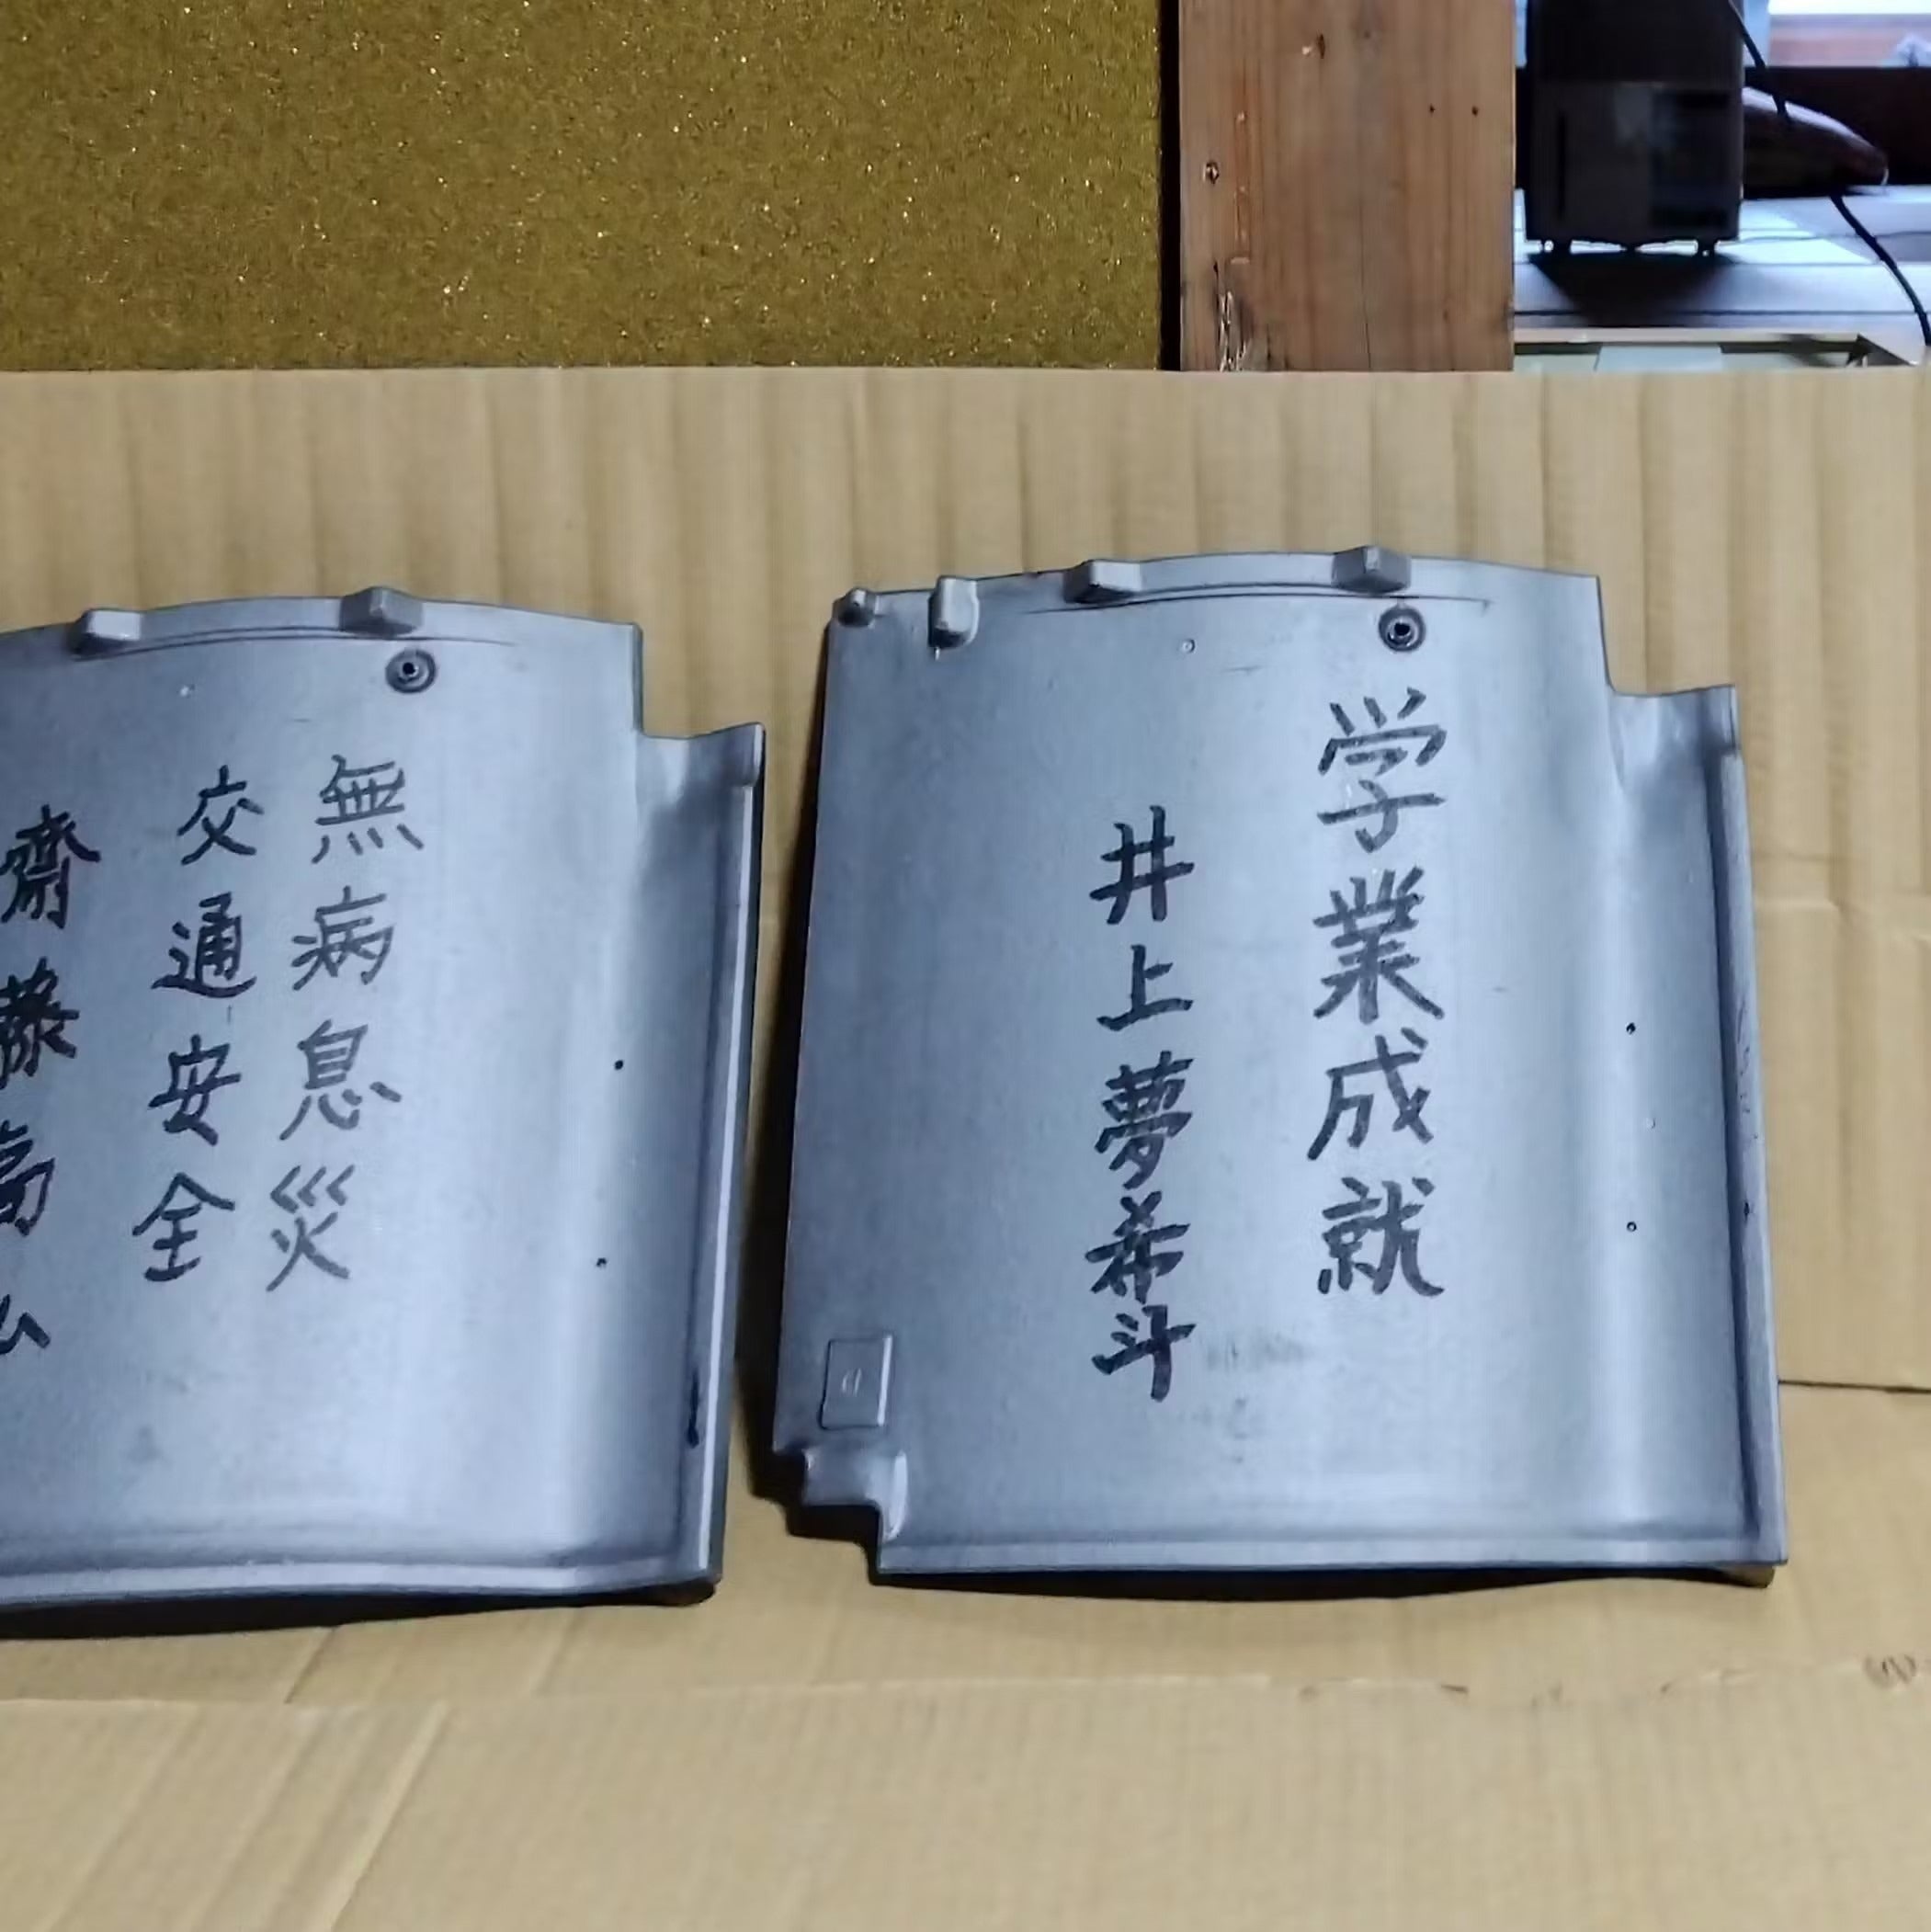 学業成就
井上夢希斗
無病息災
交通安全
齋藤高